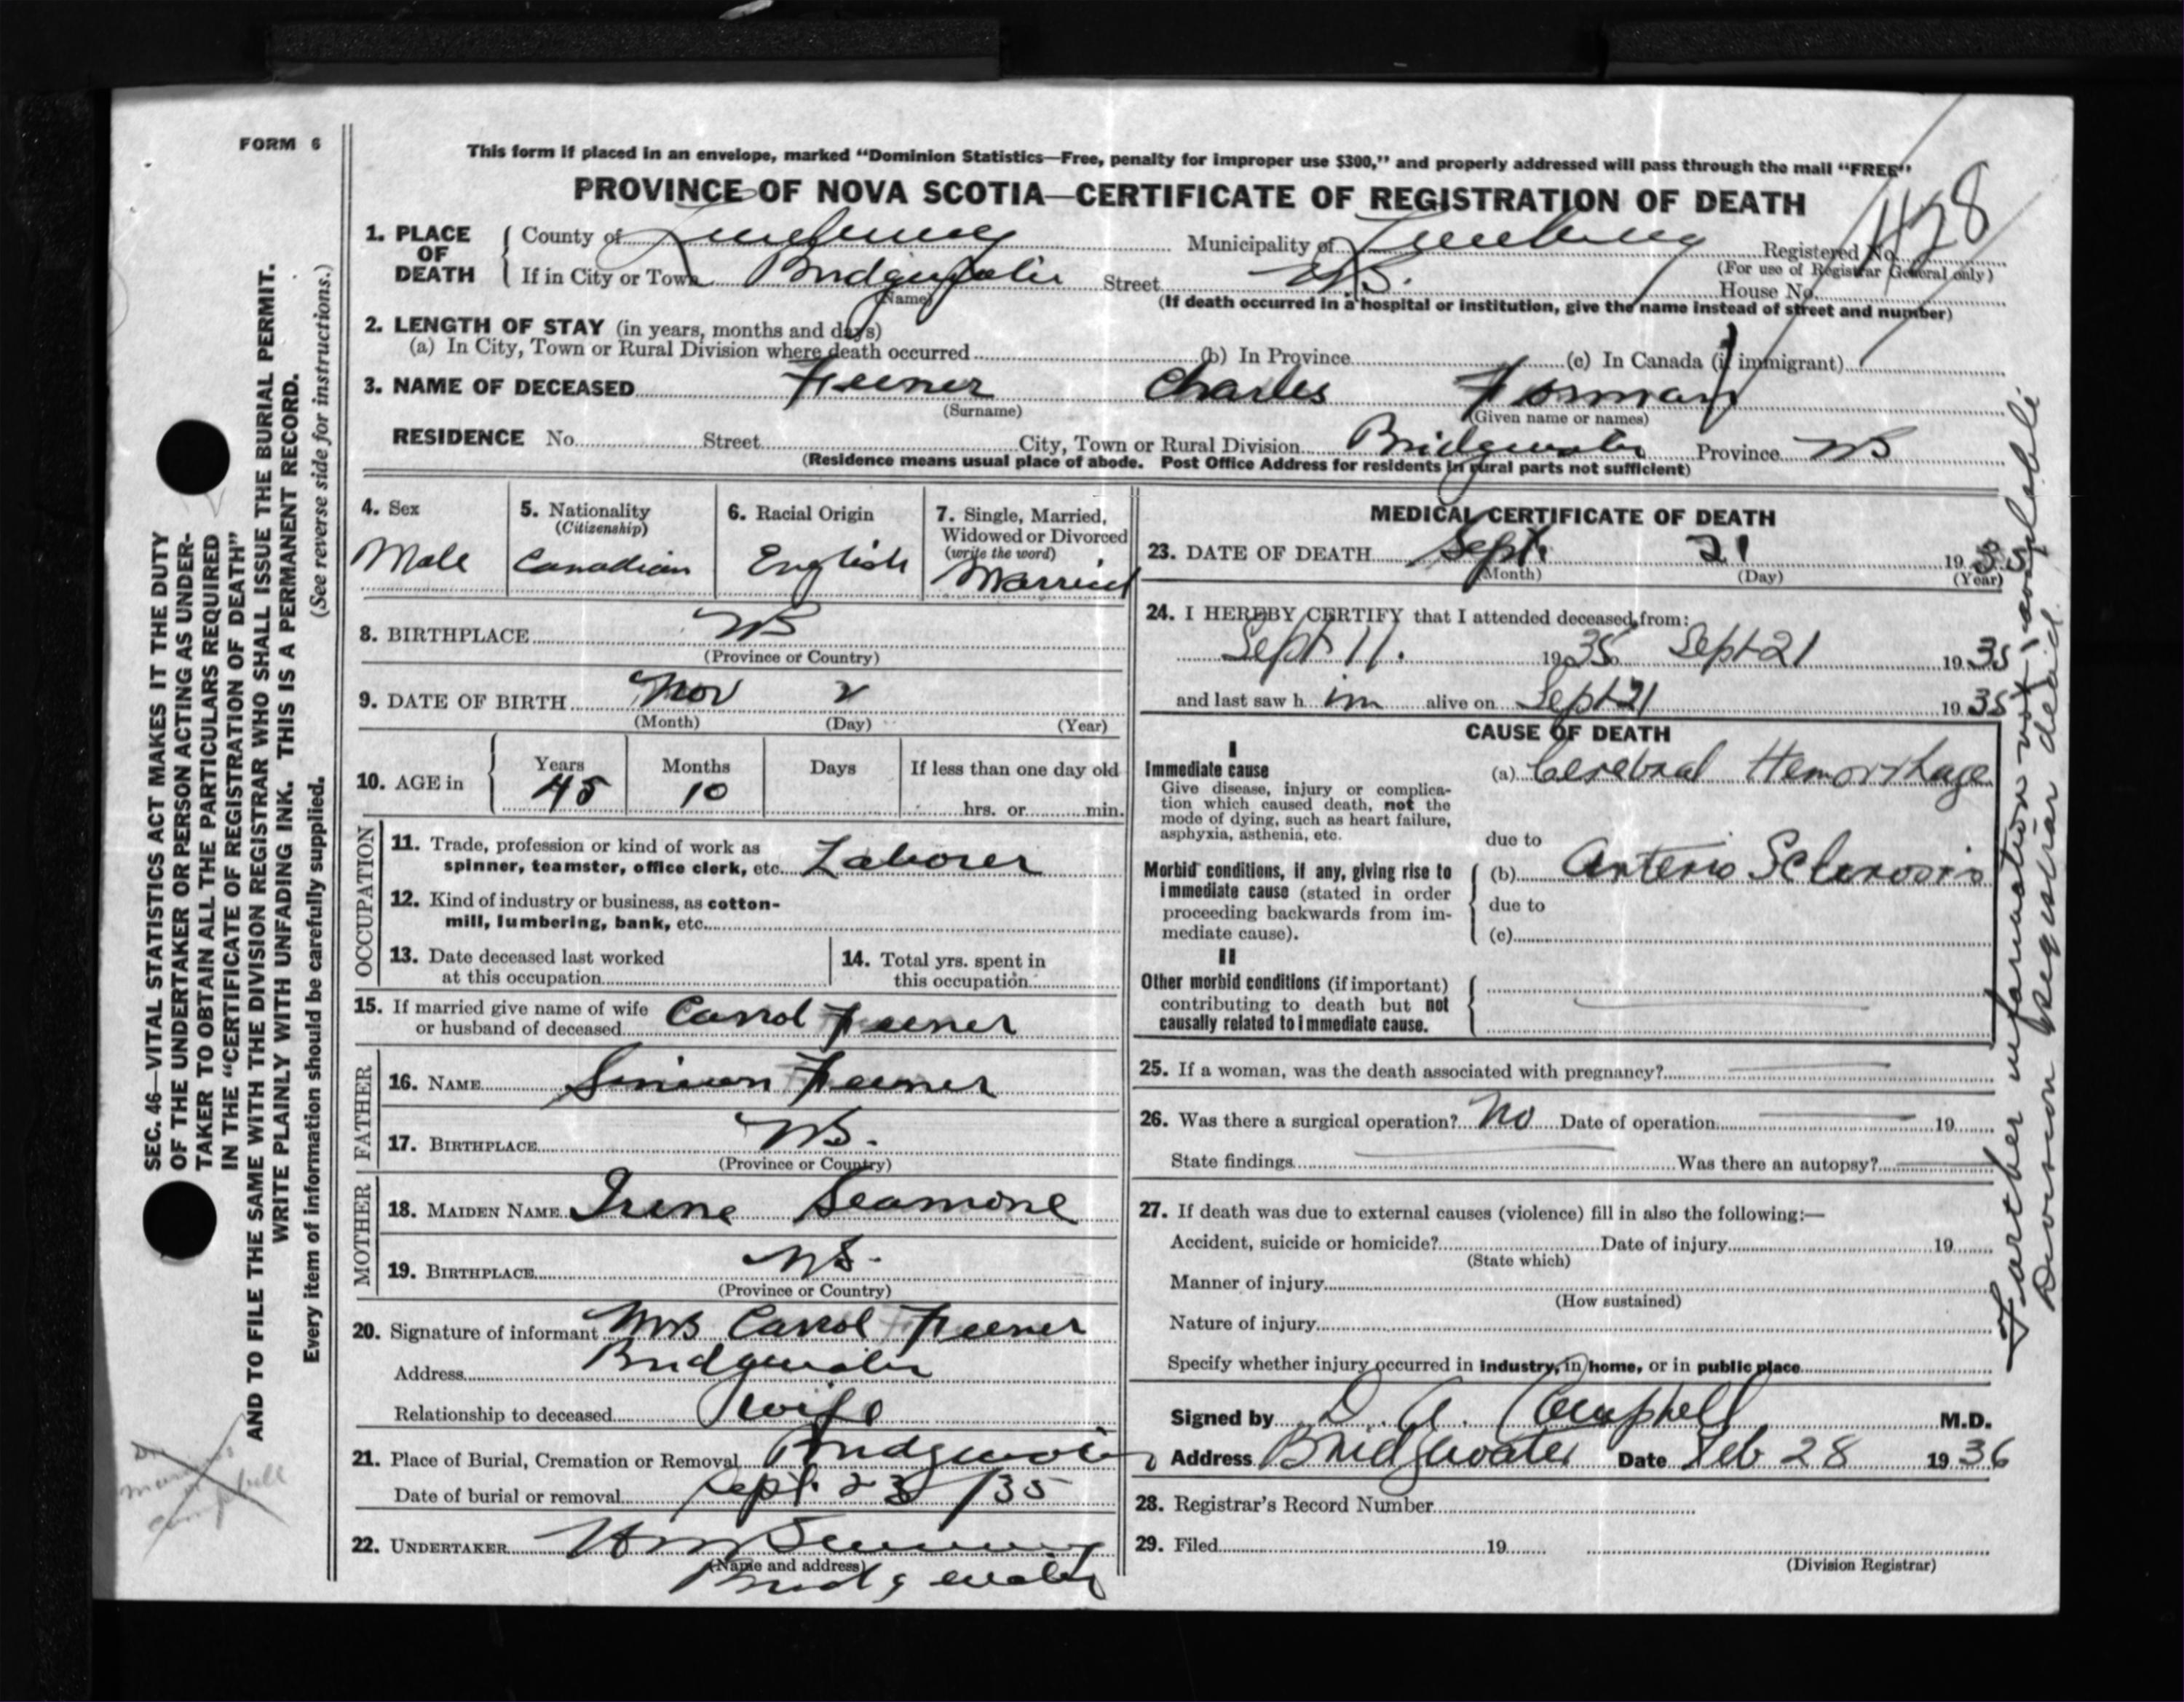 FORM 6
This form if placed in an envelope, marked “Dominion Statistics—Free, penalty for improper use $300,” and properly addressed will pass through the mail “FREE”
PROVINCE OF NOVA SCOTIA—CERTIFICATE OF REGISTRATION OF DEATH
1. PLACE OF DEATH { County of Lunenburg Municipality of Lunenburg Registered No.
(For use of Registrar General only)
If in City or Town Bridgewater Street House No.
(Name)
(If death occurred in a hospital or institution, give the name instead of street and number)
2. LENGTH OF STAY (in years, months and days)
(a) In City, Town or Rural Division where death occurred (b) In Province (c) In Canada (if immigrant)
3. NAME OF DECEASED Feener Charles Norman
(Surname) (Given name or names)
RESIDENCE No. Street City, Town or Rural Division Bridgewater Province NS
(Residence means usual place of abode. Post Office Address for residents in rural parts not sufficient)
4. Sex
Male
5. Nationality
(Citizenship)
Canadian
6. Racial Origin
English
7. Single, Married,
Widowed or Divorced
(write the word)
Married
8. BIRTHPLACE NS
(Province or Country)
9. DATE OF BIRTH Nov 2
(Month) (Day) (Year)
10. AGE in { Years Months Days If less than one day old
45 10 hrs. or min.
OCCUPATION
11. Trade, profession or kind of work as
spinner, teamster, office clerk, etc. Laborer
12. Kind of industry or business, as cotton-
mill, lumbering, bank, etc.
13. Date deceased last worked
at this occupation
14. Total yrs. spent in
this occupation
15. If married give name of wife
or husband of deceased Carrol Feener
FATHER
16. NAME Simeon Feener
17. BIRTHPLACE NS.
(Province or Country)
MOTHER
18. MAIDEN NAME Irene Seamone
19. BIRTHPLACE NS.
(Province or Country)
20. Signature of informant Mrs Carrol Feener
Address Bridgewater
Relationship to deceased Wife
21. Place of Burial, Cremation or Removal Bridgewater
Date of burial or removal Sept. 23/35
22. UNDERTAKER
(Name and address)
Bridgewater
MEDICAL CERTIFICATE OF DEATH
23. DATE OF DEATH Sept. 21 1935
(Month) (Day) (Year)
24. I HEREBY CERTIFY that I attended deceased from:
Sept 11. 1935 Sept 21 1935
and last saw him alive on Sept 21 1935
CAUSE OF DEATH
I
Immediate cause
Give disease, injury or complica-
tion which caused death, not the
mode of dying, such as heart failure,
asphyxia, asthenia, etc.
(a) Cerebral Hemorrhage
due to
Morbid conditions, if any, giving rise to
immediate cause (stated in order
proceeding backwards from im-
mediate cause).
(b) Arterio Sclerosis
due to
(c)
II
Other morbid conditions (if important)
contributing to death but not
causally related to immediate cause.
25. If a woman, was the death associated with pregnancy?
26. Was there a surgical operation? No Date of operation 19
State findings Was there an autopsy?
27. If death was due to external causes (violence) fill in also the following:—
Accident, suicide or homicide? Date of injury 19
(State which)
Manner of injury
(How sustained)
Nature of injury
Specify whether injury occurred in industry, in home, or in public place
Signed by D. A. Campbell M.D.
Address Bridgewater Date Feb 28 1936
28. Registrar's Record Number
29. Filed 19
(Division Registrar)
SEC. 46—VITAL STATISTICS ACT MAKES IT THE DUTY
OF THE UNDERTAKER OR PERSON ACTING AS UNDER-
TAKER TO OBTAIN ALL THE PARTICULARS REQUIRED
IN THE “CERTIFICATE OF REGISTRATION OF DEATH”
AND TO FILE THE SAME WITH THE DIVISION REGISTRAR WHO SHALL ISSUE THE BURIAL PERMIT.
WRITE PLAINLY WITH UNFADING INK. THIS IS A PERMANENT RECORD.
Every item of information should be carefully supplied. (See reverse side for instructions.)
Farther information not available
Division Registrar dead